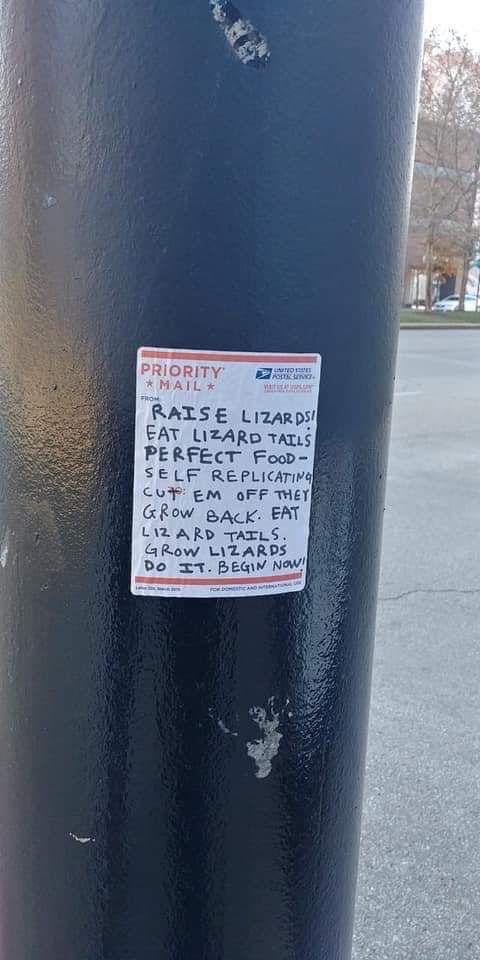 PRIORITY
★ MAIL ★
UNITED STATES
POSTAL SERVICE
VISIT US AT USPS.COM
FROM:
RAISE LIZARDS!
EAT LIZARD TAILS
PERFECT FOOD-
SELF REPLICATING
CUT EM OFF THEY
GROW BACK. EAT
LIZARD TAILS.
GROW LIZARDS
DO IT. BEGIN NOW!
FOR DOMESTIC AND INTERNATIONAL USE